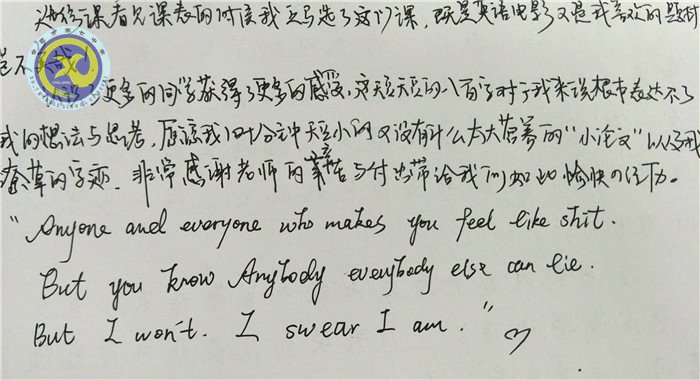 选课看见课表的时候我立马选了这门课，既是英语电影又是我喜欢的题材
岂不美哉！
更多的同学获得了更多的感受，这短短的八百字对于我来说根本表达不了
我的想法与思考，原谅我四十分钟短小的又没有什么太大营养的“小论文”以及我
潦草的字迹，非常感谢老师的辛苦与付出带给我们如此愉快的经历。
“Anyone and everyone who makes you feel like shit.
But you know Anybody everybody else can lie.
But I won't. I swear I am.”